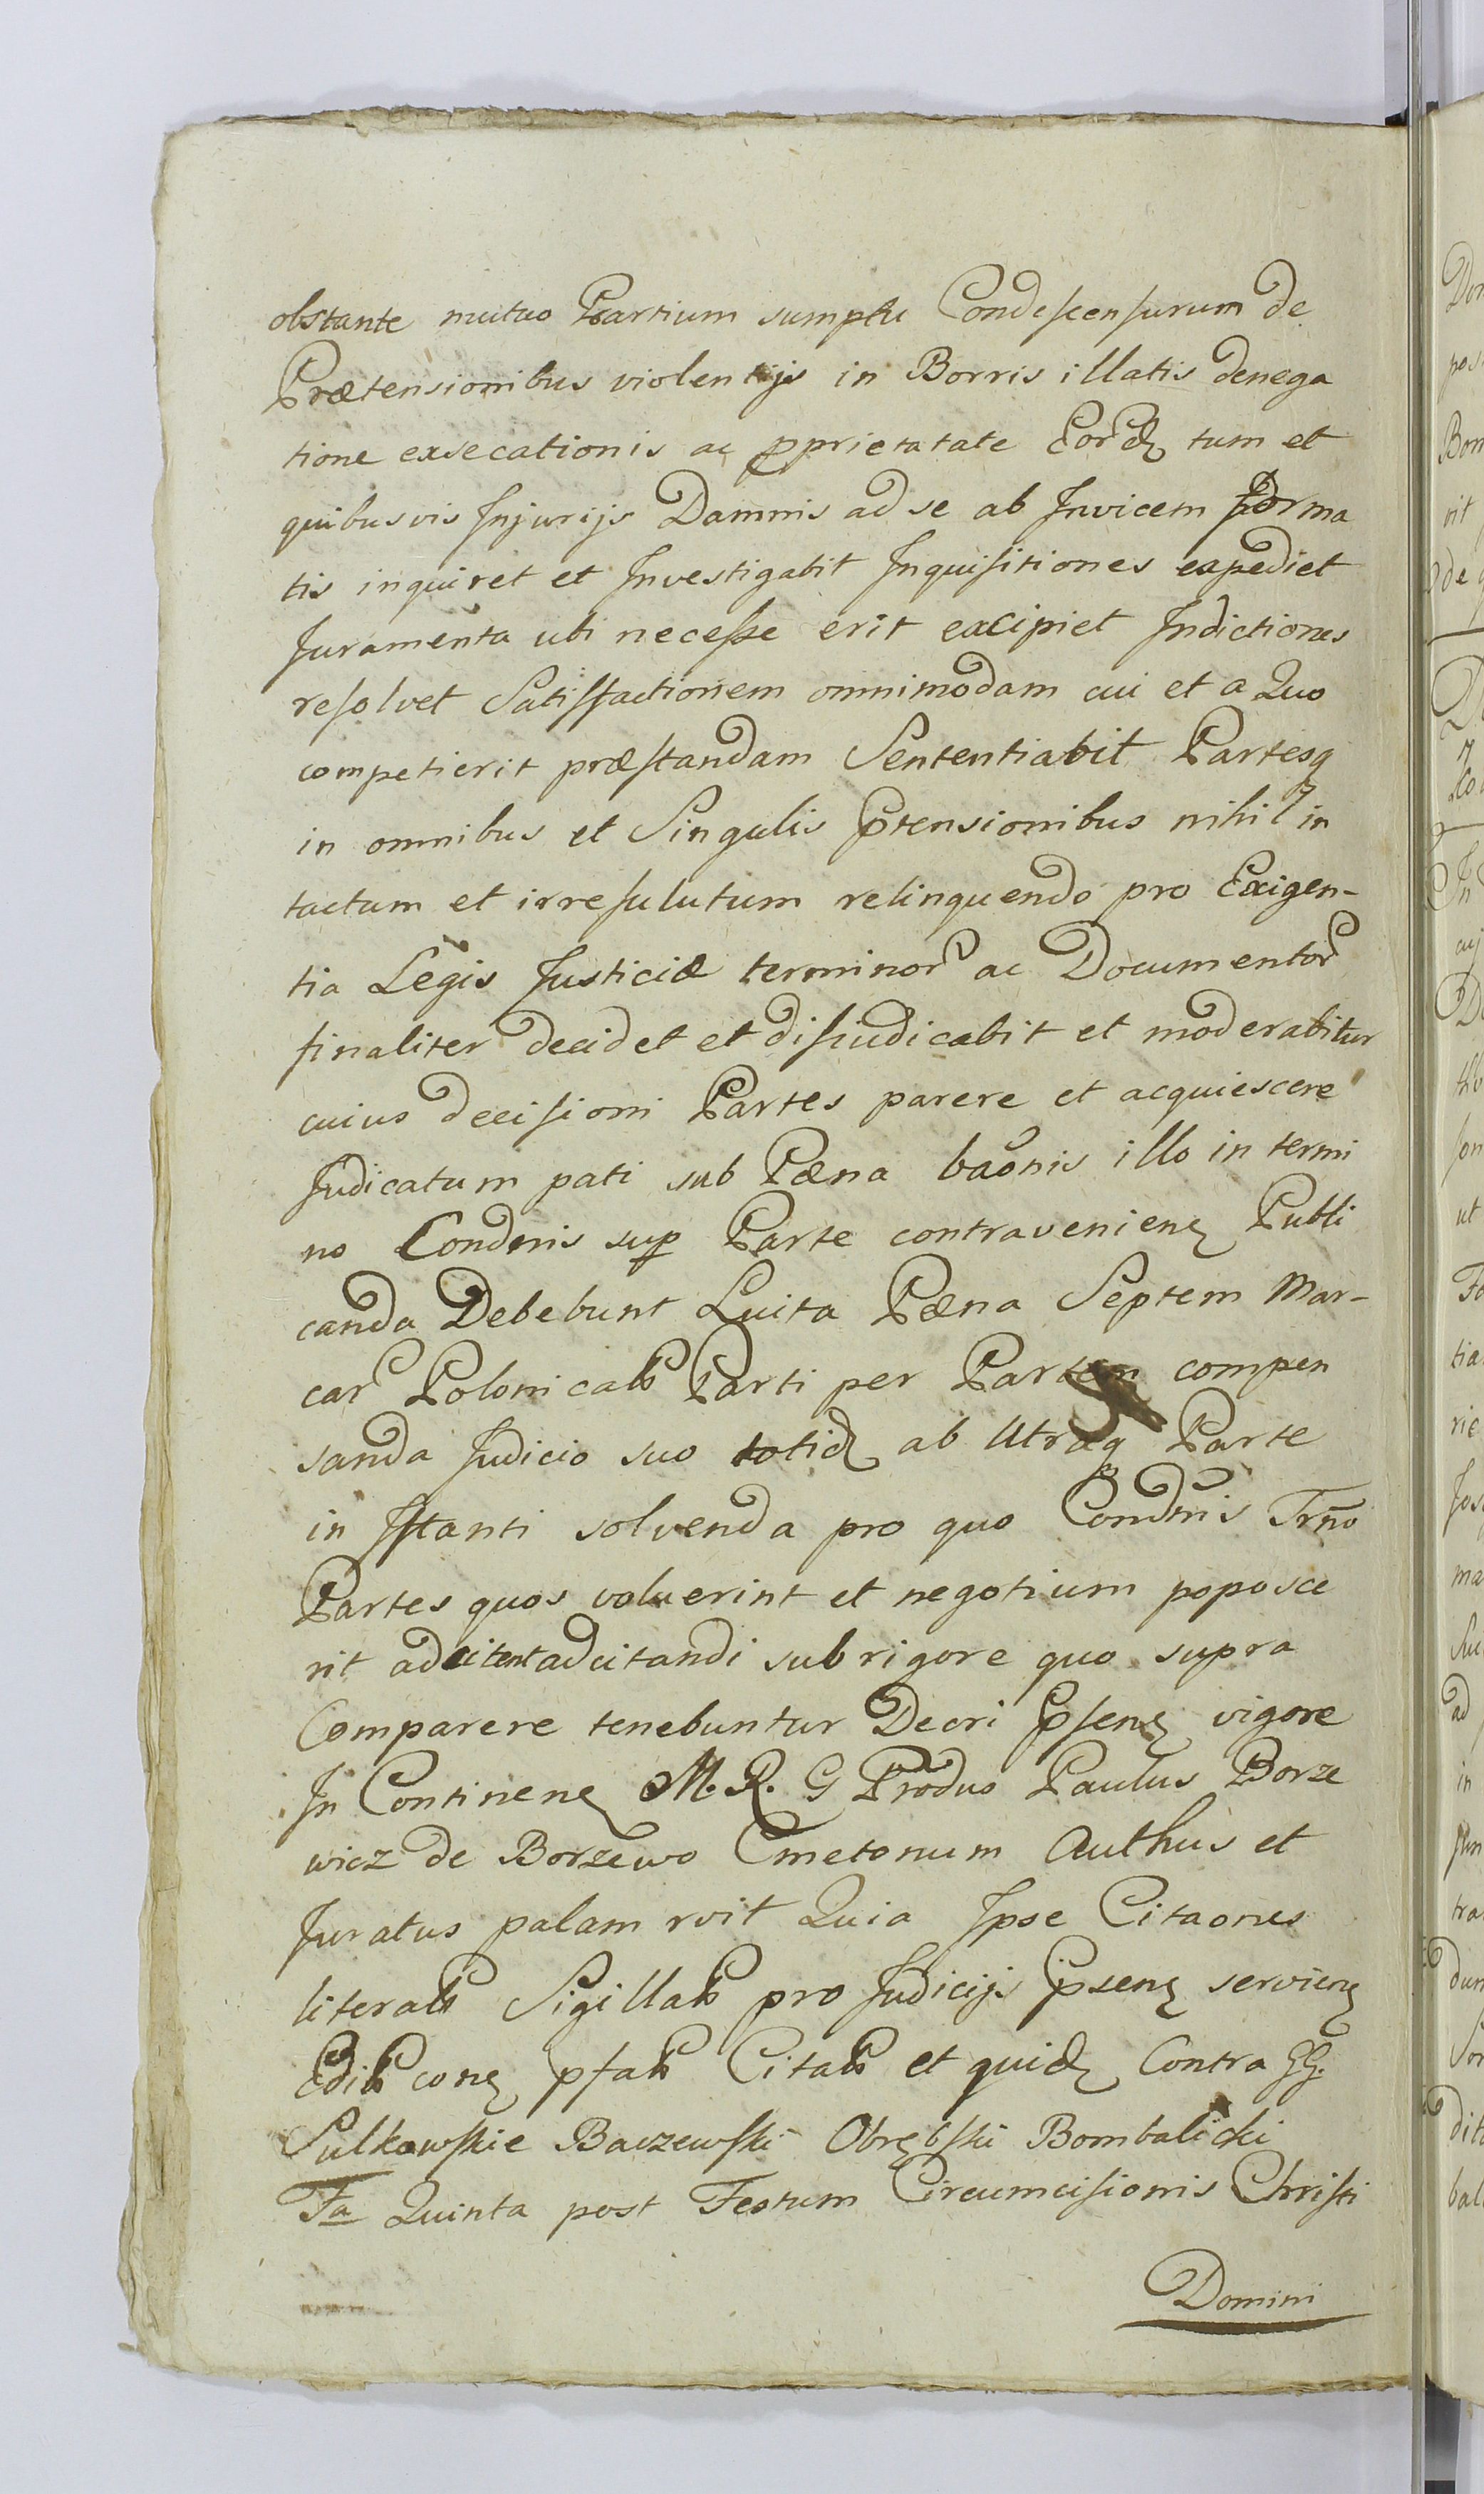 obstante mutuo Partium sumptu Condescensurum de
Prætensionibus violentijs in Borris illatis denega
tione exsecationis ac pprietatate Eord tum et
quibusvis Injurijs Damnis ad se ab Invicem forma
tis inquiret et Investigabit Inquisitiones expediet
Juramenta ubi necesse erit excipiet Indictiones
resolvet Satisfactionem omnimodam cui et a Quo
competierit præstandam Sententiabit Partesq
in omnibus et Singulis Ptensionibus nihil in
tactum et irresulutum relinquendo pro Exigen-
tia Legis Justiciæ terminor ac Documentor
finaliter decidet et disiudicabit et moderabitur
cuius decisioni Partes parere et acquiescere
Judicatum pati sub Pæna baonis illo in termi
no Condnis sup Parte contravenien Publi
canda Debebunt Luita Pæna Septem Mar-
car Polonicals Parti per Partem compen
sanda Judicio suo totid ab Utraq Parte
in Istanti solvenda pro quo Condnis Trno
Partes quos voluerint et negotium poposce
rit adcitent adcitandi sub rigore quo supra
Comparere tenebuntur Decri Psen vigore
In Continen M. R. G Produs Paulus Borze
wicz de Borzewo Cmetonum Authus et
Juratus palam rvit Quia Ipse Citaones
literals Sigillals pro Judicijs psen servien
Edils con pfals Citals et quid Contra GG.
Sulkowskie Baczewski Obrębski Bombalicki
Fa Quinta post Festum Circumcisionis Christi
Domini